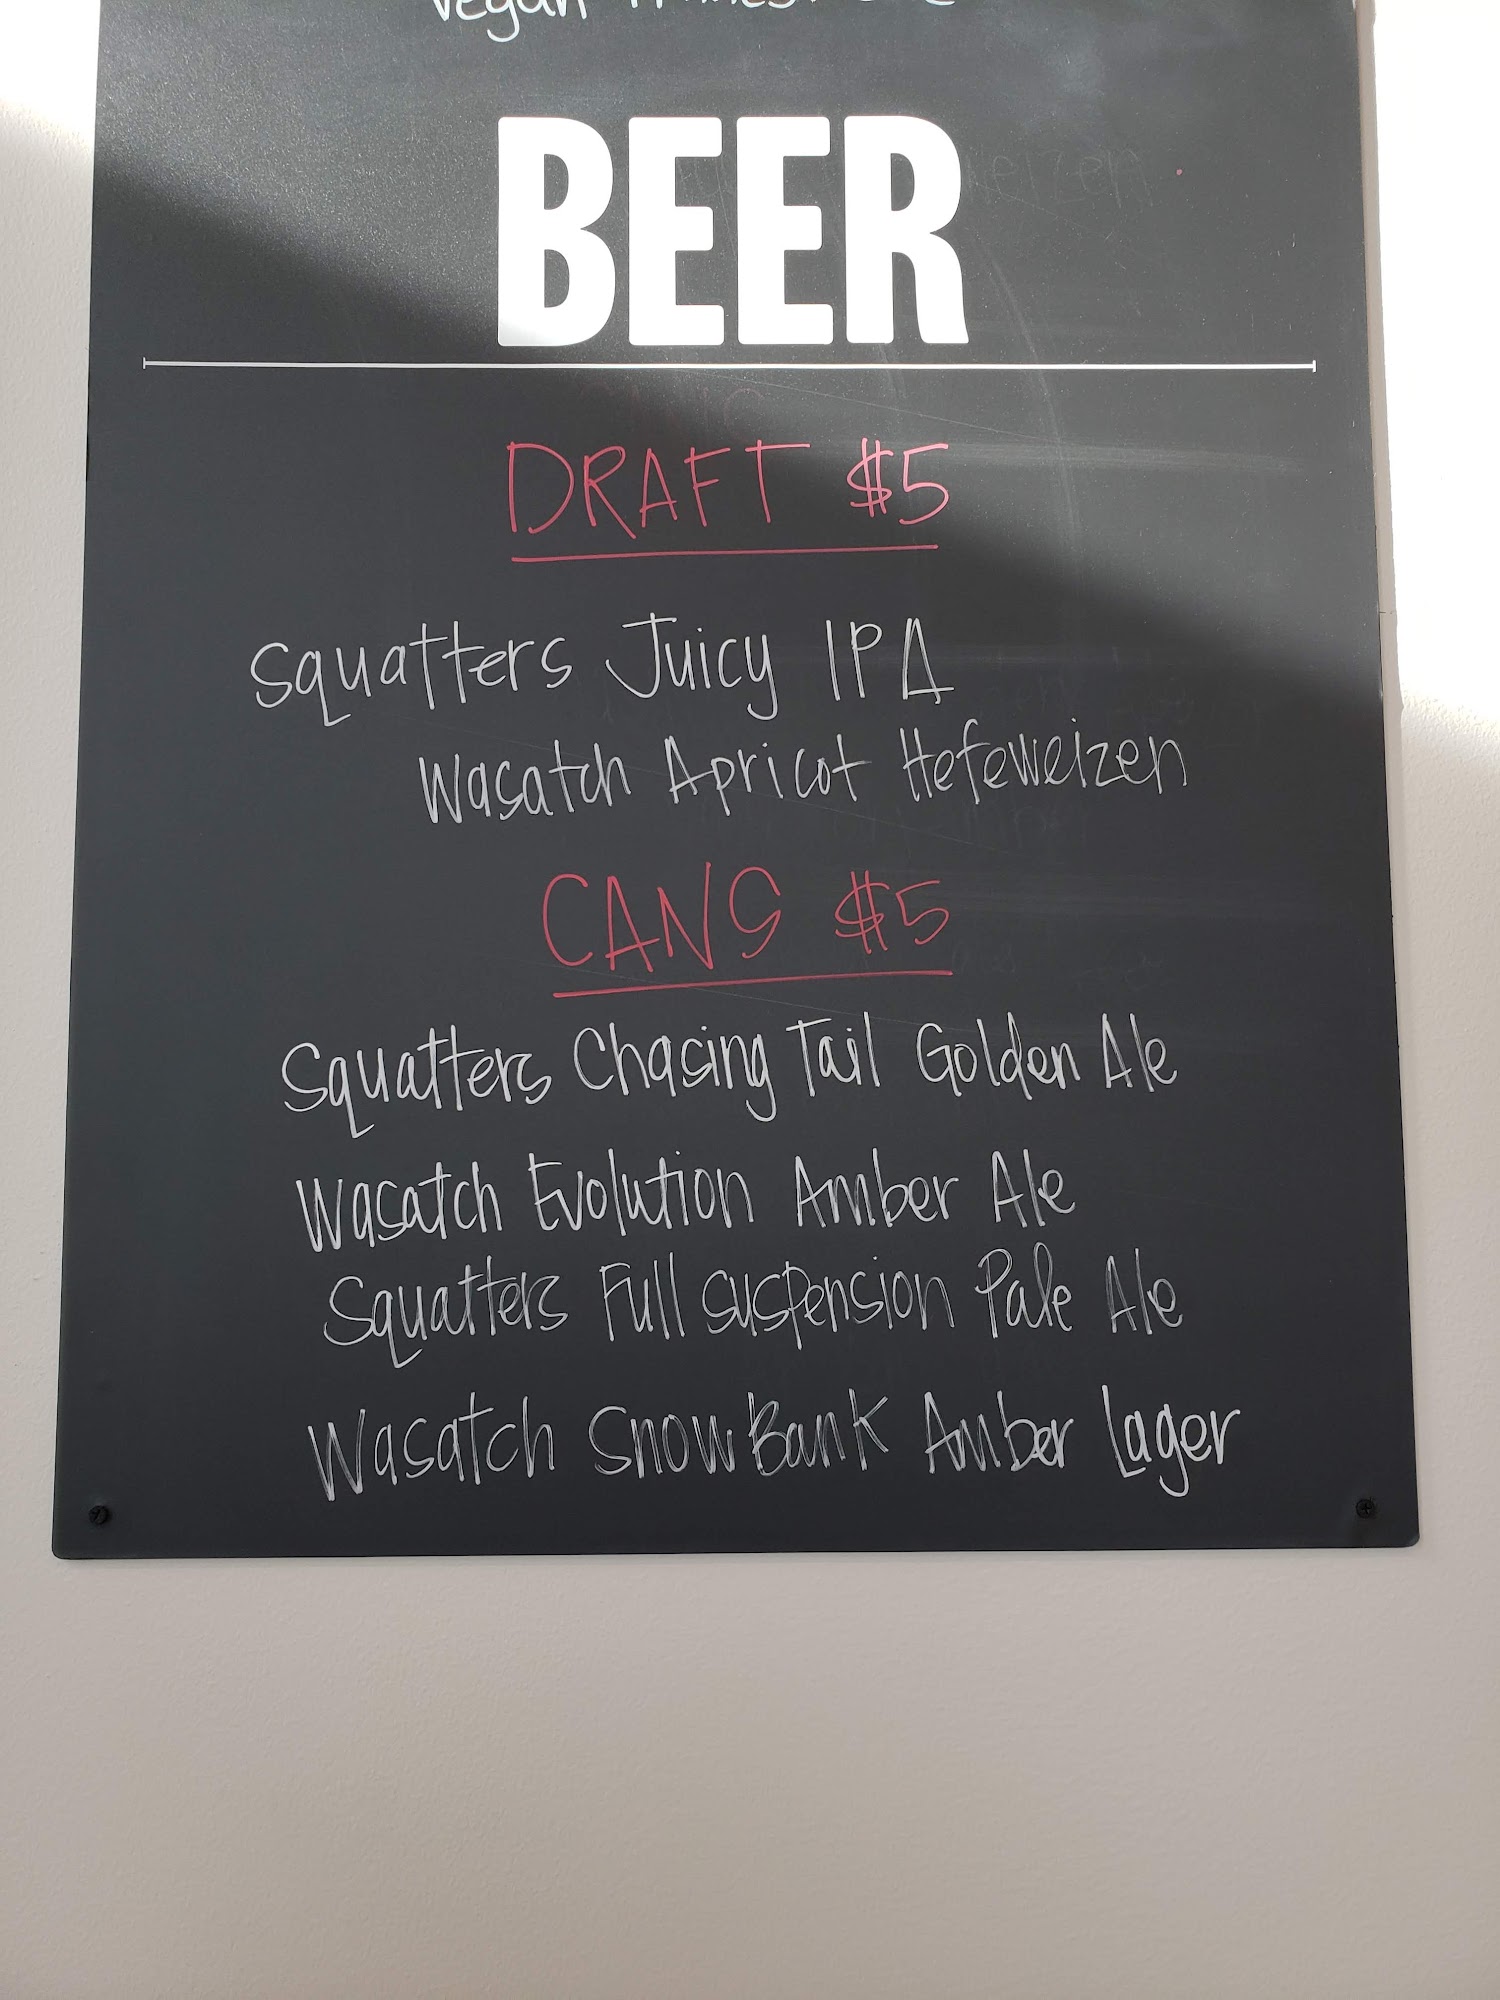 vegan
BEER
DRAFT $5
Squatters Juicy IPA
Wasatch Apricot Hefeweizen
CANS $5
Squatters Chasing Tail Golden Ale
Wasatch Evolution Amber Ale
Squatters Full Suspension Pale Ale
Wasatch SnowBank Amber Lager